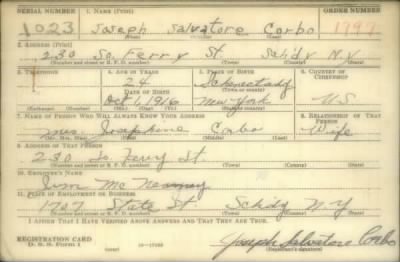 SERIAL NUMBER 1. NAME (Print) ORDER NUMBER
1023 Joseph Salvatore Corbo 1797
(First) (Middle) (Last)
2. ADDRESS (Print)
230 So. Ferry St. Schdy N.Y.
(Number and street or R. F. D. number) (Town) (County) (State)
3. TELEPHONE 4. AGE IN YEARS 5. PLACE OF BIRTH 6. COUNTRY OF CITIZENSHIP
24 Schenectady
DATE OF BIRTH (Town or county)
Oct 1, 1916 New York U.S.
(Exchange) (Number) (Mo.) (Day) (Yr.) (State or country)
7. NAME OF PERSON WHO WILL ALWAYS KNOW YOUR ADDRESS 8. RELATIONSHIP OF THAT PERSON
Mrs. Josephine Corbo Wife
(Mr., Mrs., Miss) (First) (Middle) (Last)
9. ADDRESS OF THAT PERSON
230 So Ferry St.
(Number and street or R. F. D. number) (Town) (County) (State)
10. EMPLOYER'S NAME
Jim Mc
11. PLACE OF EMPLOYMENT OR BUSINESS
1727 State St Schdy N-Y
(Number and street or R. F. D. number) (Town) (County) (State)
I AFFIRM THAT I HAVE VERIFIED ABOVE ANSWERS AND THAT THEY ARE TRUE.
REGISTRATION CARD
D. S. S. Form 1 Joseph Salvatore Corbo
(Registrant's signature)